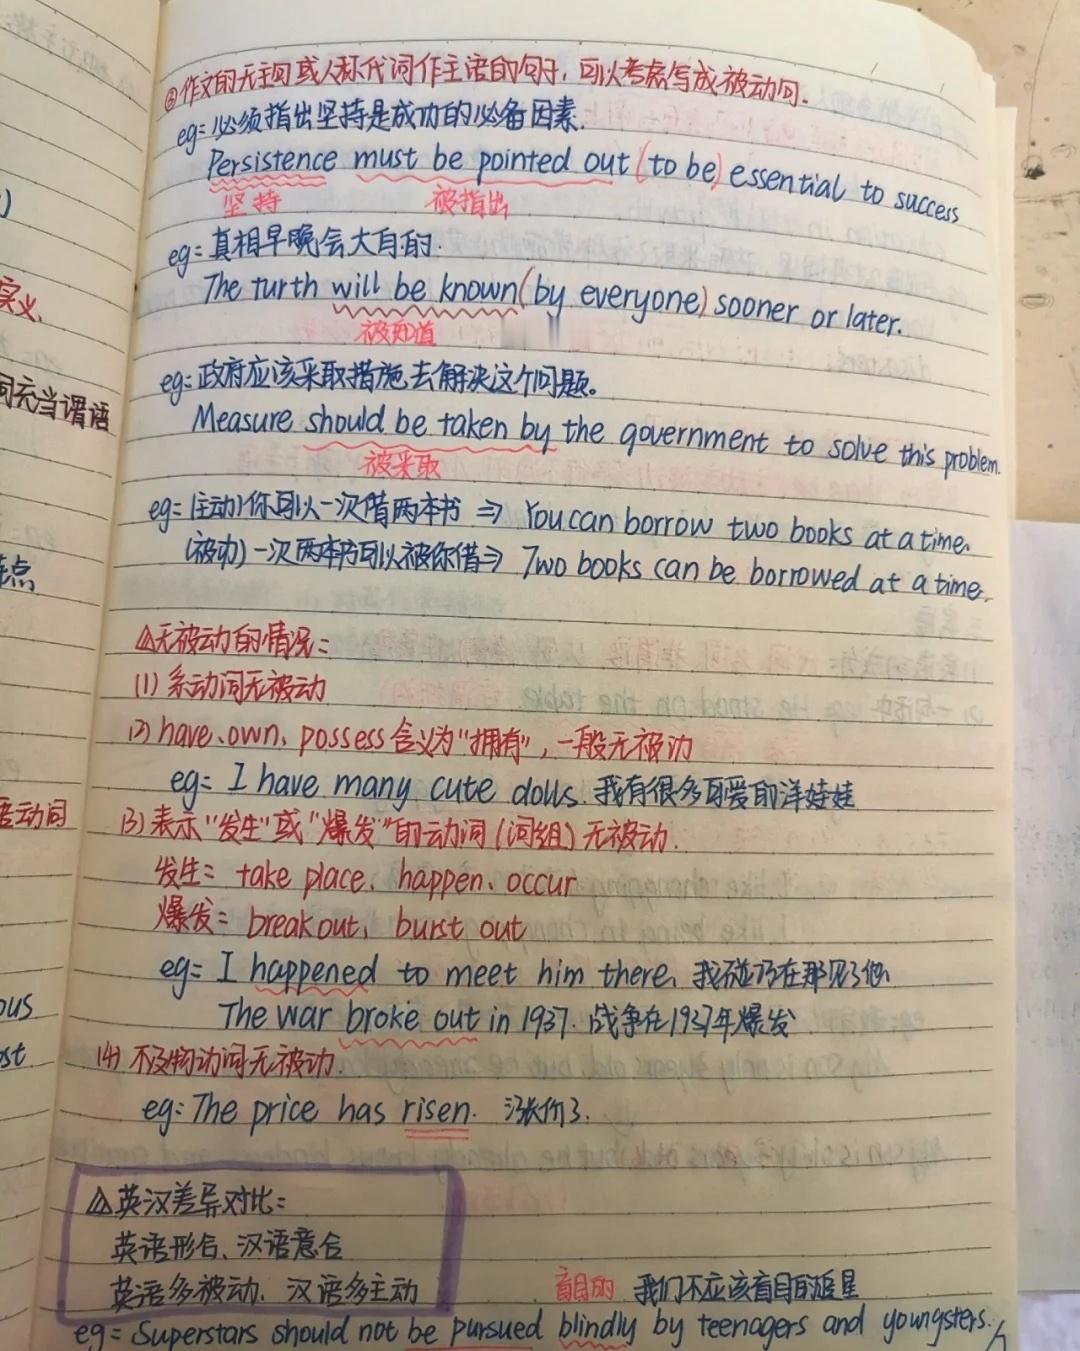 ⑥作文的无主句或人称代词作主语的句子，可以考虑写成被动句.
eg=必须指出坚持是成功的必备因素.
Persistence must be pointed out (to be) essential to success
坚持 被指出
eg=真相早晚会大白的.
The turth will be known (by everyone) sooner or later.
被知道
eg=政府应该采取措施去解决这个问题。
Measure should be taken by the government to solve this problem.
被采取
eg=(主动)你可以一次借两本书 ⇒ You can borrow two books at a time.
(被动)一次两本书可以被你借⇒ Two books can be borrowed at a time.
△无被动的情况=
(1) 系动词无被动
(2) have、own、possess 含义为"拥有"，一般无被动
eg= I have many cute dolls. 我有很多可爱的洋娃娃
(3) 表示"发生"或"爆发"的动词(词组)无被动.
发生= take place、happen、occur
爆发= break out、burst out
eg= I happened to meet him there. 我碰巧在那见了他
The war broke out in 1937. 战争在1937年爆发
(4) 不及物动词无被动.
eg= The price has risen. 涨价了.
△英汉差异对比=
英语形合、汉语意合
英语多被动、汉语多主动
盲目的 我们不应该盲目的追星
eg= Superstars should not be pursued blindly by teenagers and youngsters.
义
词充当谓语
点
动词
ous
st